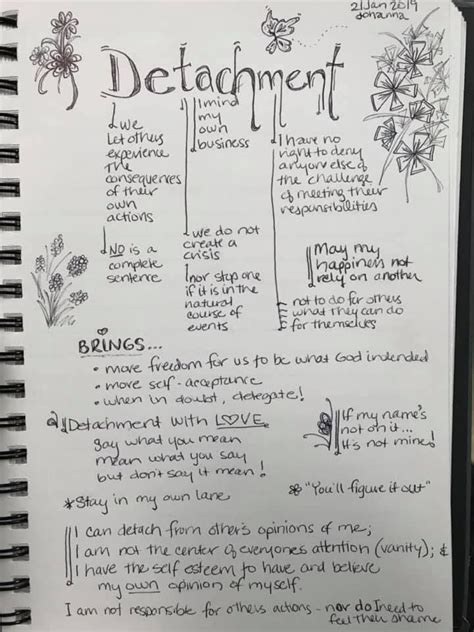 21 Jan 2019
Johanna
Detachment
we
Let others
experience
the
consequences
of their
own
actions
NO is a
complete
sentence
I mind
my
own
business
we do not
create a
crisis
nor stop one
if it is in the
natural
course of
events
I have no
right to deny
anyone else of
the challenge
of meeting their
responsibilities
May my
happiness not
rely on another
not to do for others
what they can do
for themselves
BRINGS...
• more freedom for us to be what God intended
• more self-acceptance
• when in doubt, delegate!
Detachment with LOVE
say what you mean
mean what you say
but don't say it mean!
If my name's
not on it...
It's not mine!
*Stay in my own lane
"You'll figure it out"
I can detach from other's opinions of me;
I am not the center of everyone's attention (vanity); &
I have the self esteem to have and believe
my own opinion of myself.
I am not responsible for others actions - nor do I need to
feel their shame